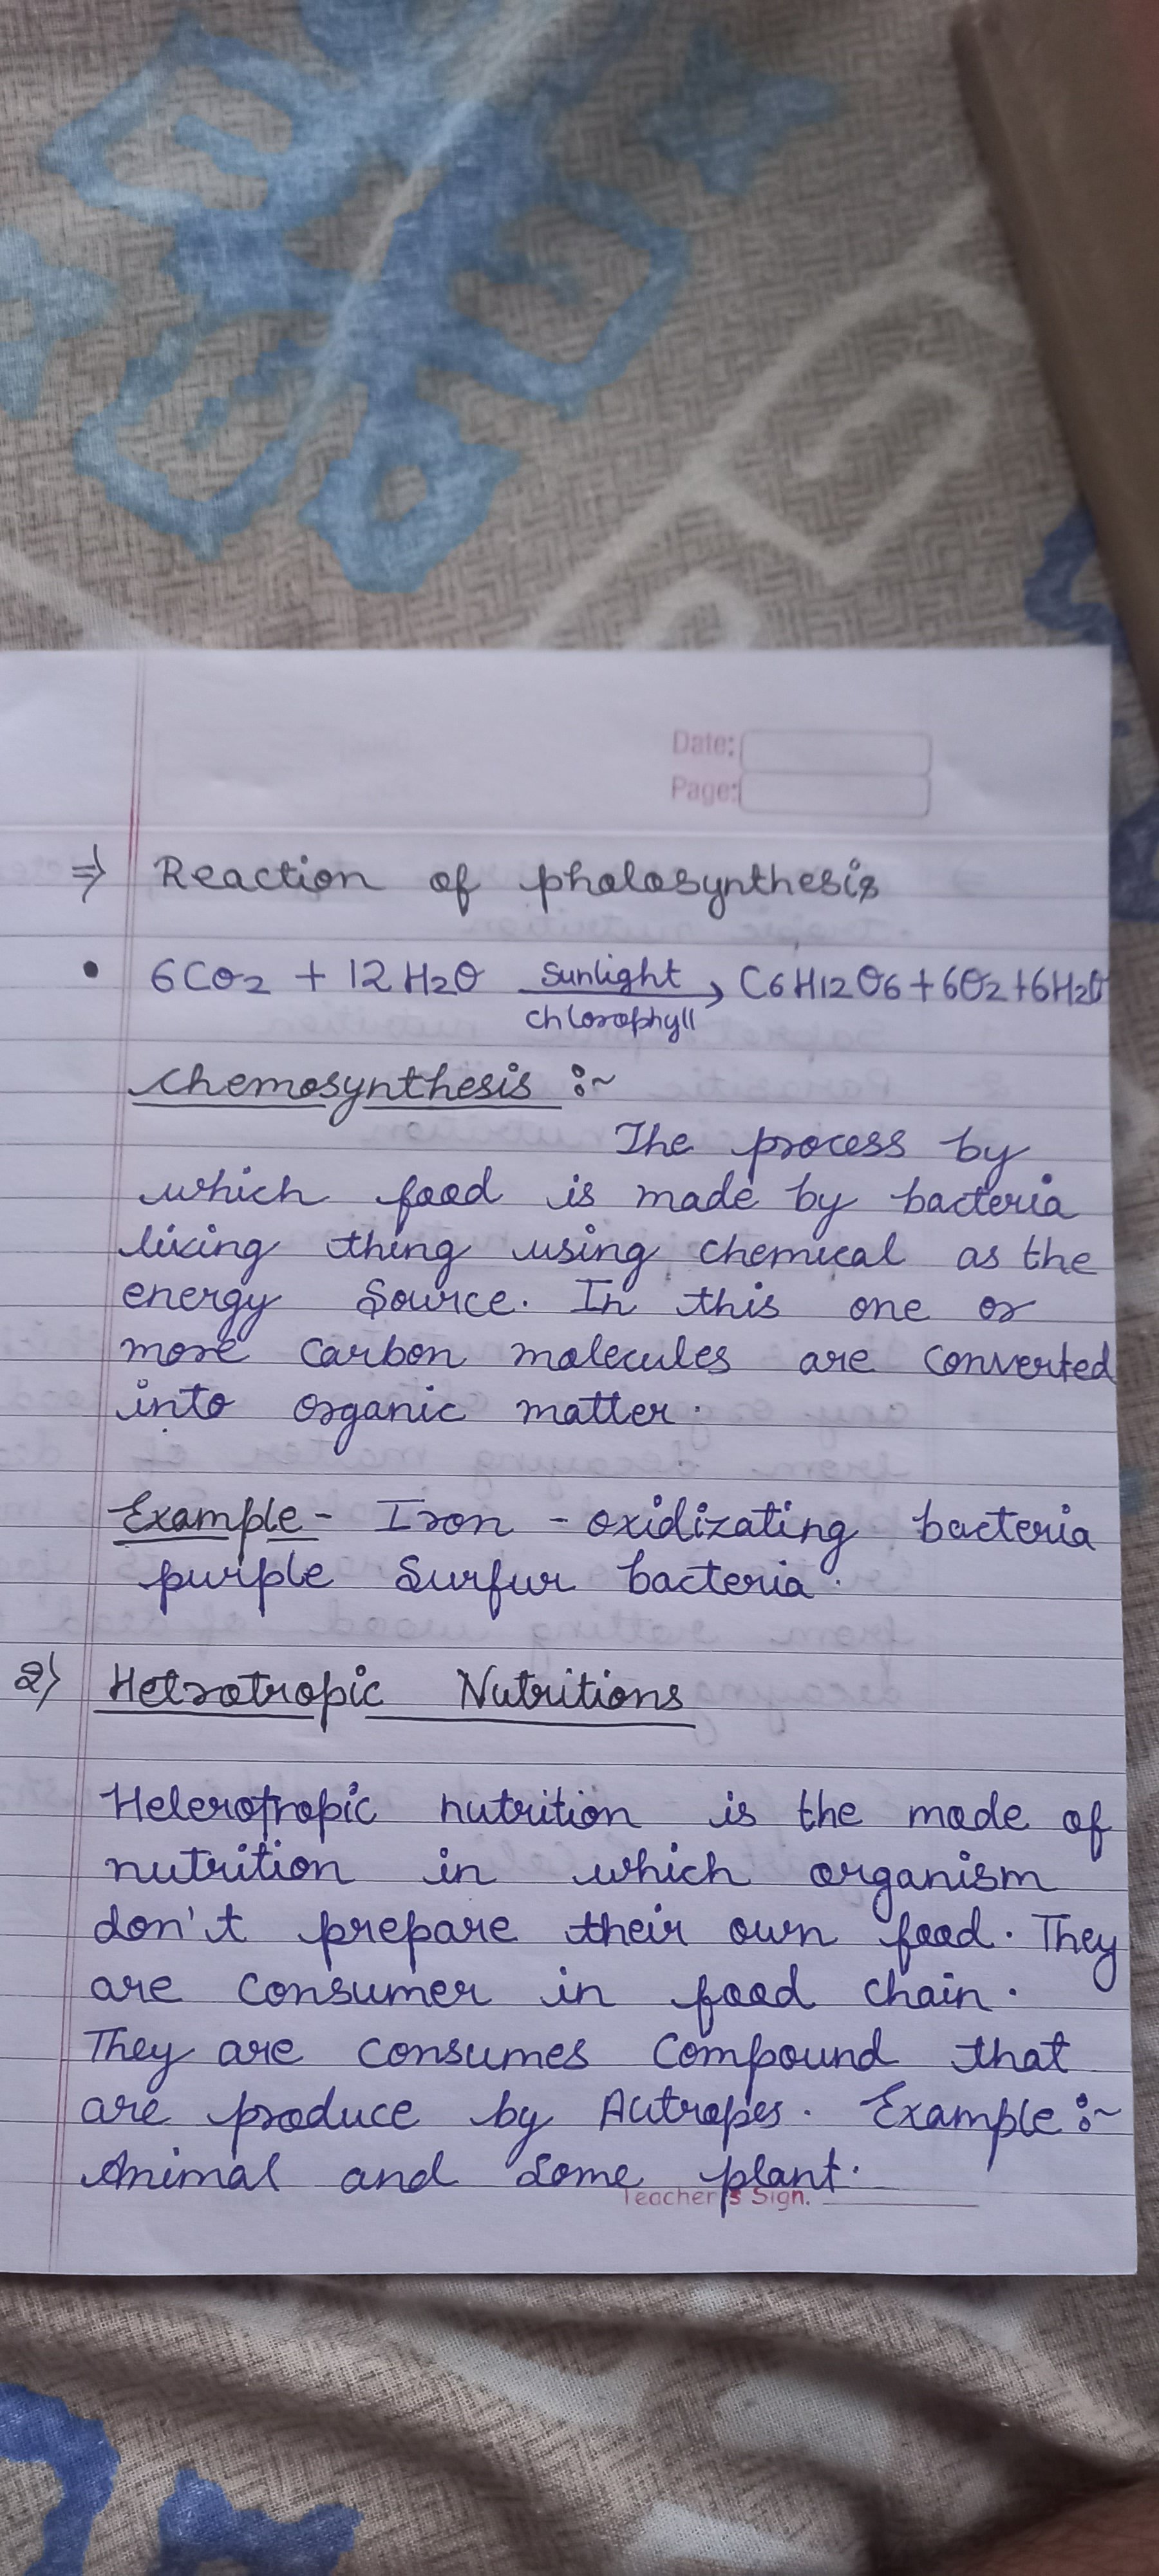 Date:
Page:
⇒ Reaction of pholosynthesis
• 6CO2 + 12H2O sunlight → C6H12O6 + 6O2 + 6H2O
chlorophyll
Chemosynthesis :~
The process by
which food is made by bacteria
living thing using chemical as the
energy Source. In this one or
more carbon molecules are converted
into organic matter.
Example - Iron - oxidizating bacteria
purple Surfur bacteria.
2) Hetrotropic Nutritions
Helerotropic nutrition is the mode of
nutrition in which organism
don't prepare their own food. They
are consumer in food chain.
They are consumes compound that
are produce by Autropes. Example :~
Animal and Some plant.
Teacher's Sign.